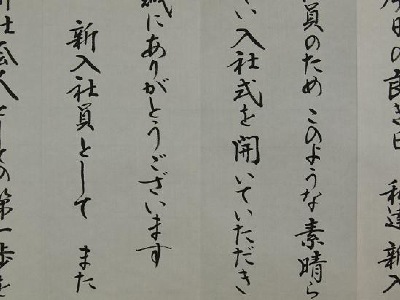 の良き日 私達新入
員のため このような素晴ら
い入社式を開いていただき
にありがとうございます
新入社員として また
社会人としての第一歩を